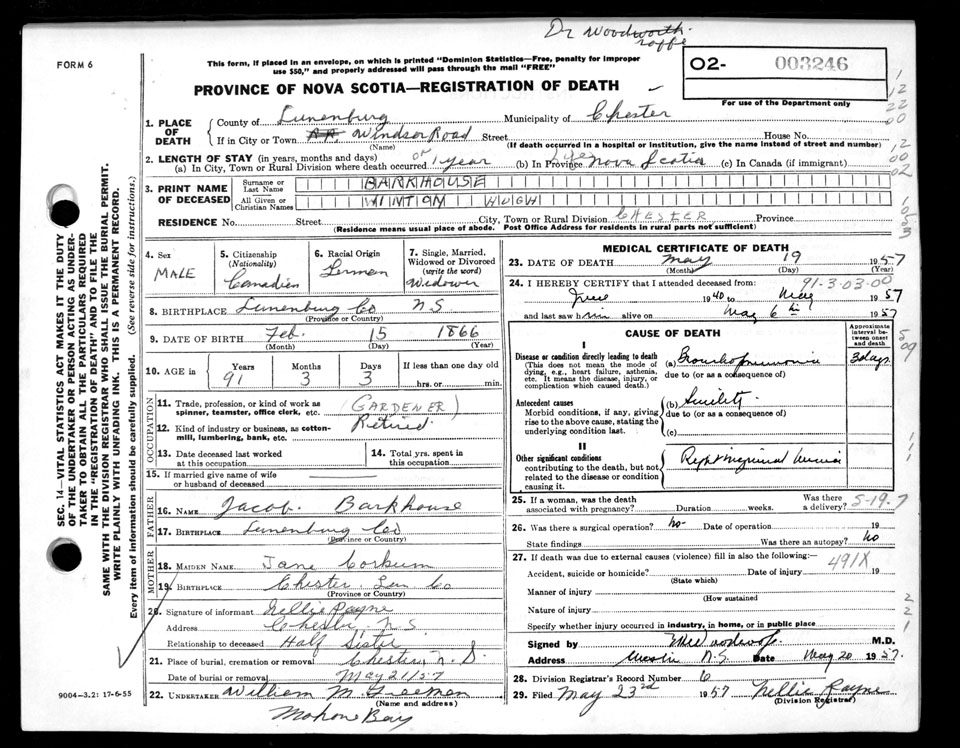 Dr Woodworth
roffe
FORM 6
This form, if placed in an envelope, on which is printed "Dominion Statistics—Free, penalty for improper
use $50," and properly addressed will pass through the mail "FREE"
O2- 003246
For use of the Department only
PROVINCE OF NOVA SCOTIA—REGISTRATION OF DEATH
1. PLACE OF DEATH
County of Lunenburg Municipality of Chester
If in City or Town R.R. Windsor Road Street House No.
(Name) (If death occurred in a hospital or institution, give the name instead of street and number)
2. LENGTH OF STAY (in years, months and days)
(a) In City, Town or Rural Division where death occurred 1 year (b) In Province Nova Scotia (c) In Canada (if immigrant)
3. PRINT NAME OF DECEASED
Surname or Last Name BARKHOUSE
All Given or Christian Names WINTON HUGH
RESIDENCE No. Street City, Town or Rural Division CHESTER Province
(Residence means usual place of abode. Post Office Address for residents in rural parts not sufficient)
4. Sex MALE
5. Citizenship (Nationality) Canadian
6. Racial Origin German
7. Single, Married, Widowed or Divorced (write the word) Widower
8. BIRTHPLACE Lunenburg Co N S
(Province or Country)
9. DATE OF BIRTH Feb. 15 1866
(Month) (Day) (Year)
10. AGE in Years 91 Months 3 Days 3 If less than one day old
hrs. or min.
OCCUPATION
11. Trade, profession, or kind of work as spinner, teamster, office clerk, etc. (GARDENER)
12. Kind of industry or business, as cotton-mill, lumbering, bank, etc. Retired
13. Date deceased last worked at this occupation
14. Total yrs. spent in this occupation
15. If married give name of wife or husband of deceased
FATHER
16. NAME Jacob Barkhouse
17. BIRTHPLACE Lunenburg Co
(Province or Country)
MOTHER
18. MAIDEN NAME Jane Corkum
19. BIRTHPLACE Chester Lun Co
(Province or Country)
20. Signature of informant Nellie Payne
Address Chester N S.
Relationship to deceased Half Sister
21. Place of burial, cremation or removal Chester, N. S.
Date of burial or removal May 21/57
22. UNDERTAKER William M. Freeman
(Name and address)
Mahone Bay
9004-3.2: 17-6-55
SEC. 14—VITAL STATISTICS ACT MAKES IT THE DUTY
OF THE UNDERTAKER OR PERSON ACTING AS UNDER-
TAKER TO OBTAIN ALL THE PARTICULARS REQUIRED
IN THE "REGISTRATION OF DEATH" AND TO FILE THE
SAME WITH THE DIVISION REGISTRAR WHO SHALL ISSUE THE BURIAL PERMIT.
WRITE PLAINLY WITH UNFADING INK. THIS IS A PERMANENT RECORD.
Every item of information should be carefully supplied. (See reverse side for instructions.)
MEDICAL CERTIFICATE OF DEATH
23. DATE OF DEATH May 19 1957
(Month) (Day) (Year)
91-3-03-00
24. I HEREBY CERTIFY that I attended deceased from:
June 1940 to May 1957
and last saw him alive on May 6th 1957
CAUSE OF DEATH
Approximate interval between onset and death
I
Disease or condition directly leading to death
(This does not mean the mode of dying, e.g., heart failure, asthenia, etc. It means the disease, injury, or complication which caused death.)
(a) Bronchopneumonia 3 days
due to (or as a consequence of)
Antecedent causes
Morbid conditions, if any, giving rise to the above cause, stating the underlying condition last.
(b) Senility
due to (or as a consequence of)
(c)
II
Other significant conditions
contributing to the death, but not related to the disease or condition causing it.
Right inguinal hernia
25. If a woman, was the death associated with pregnancy? Duration weeks. Was there a delivery?
5-19.7
26. Was there a surgical operation? no Date of operation 19
State findings Was there an autopsy? no
27. If death was due to external causes (violence) fill in also the following:—
491X
Accident, suicide or homicide? Date of injury 19
(State which)
Manner of injury
(How sustained)
Nature of injury
Specify whether injury occurred in industry, in home, or in public place
Signed by M.D.
Address N.S. Date May 20 1957.
28. Division Registrar's Record Number 6
29. Filed May 23rd 1957 Nellie Payne
(Division Registrar)